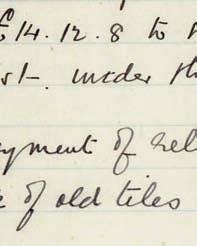 £14.12.8 to
rst. under th
yment of rel
of old tiles